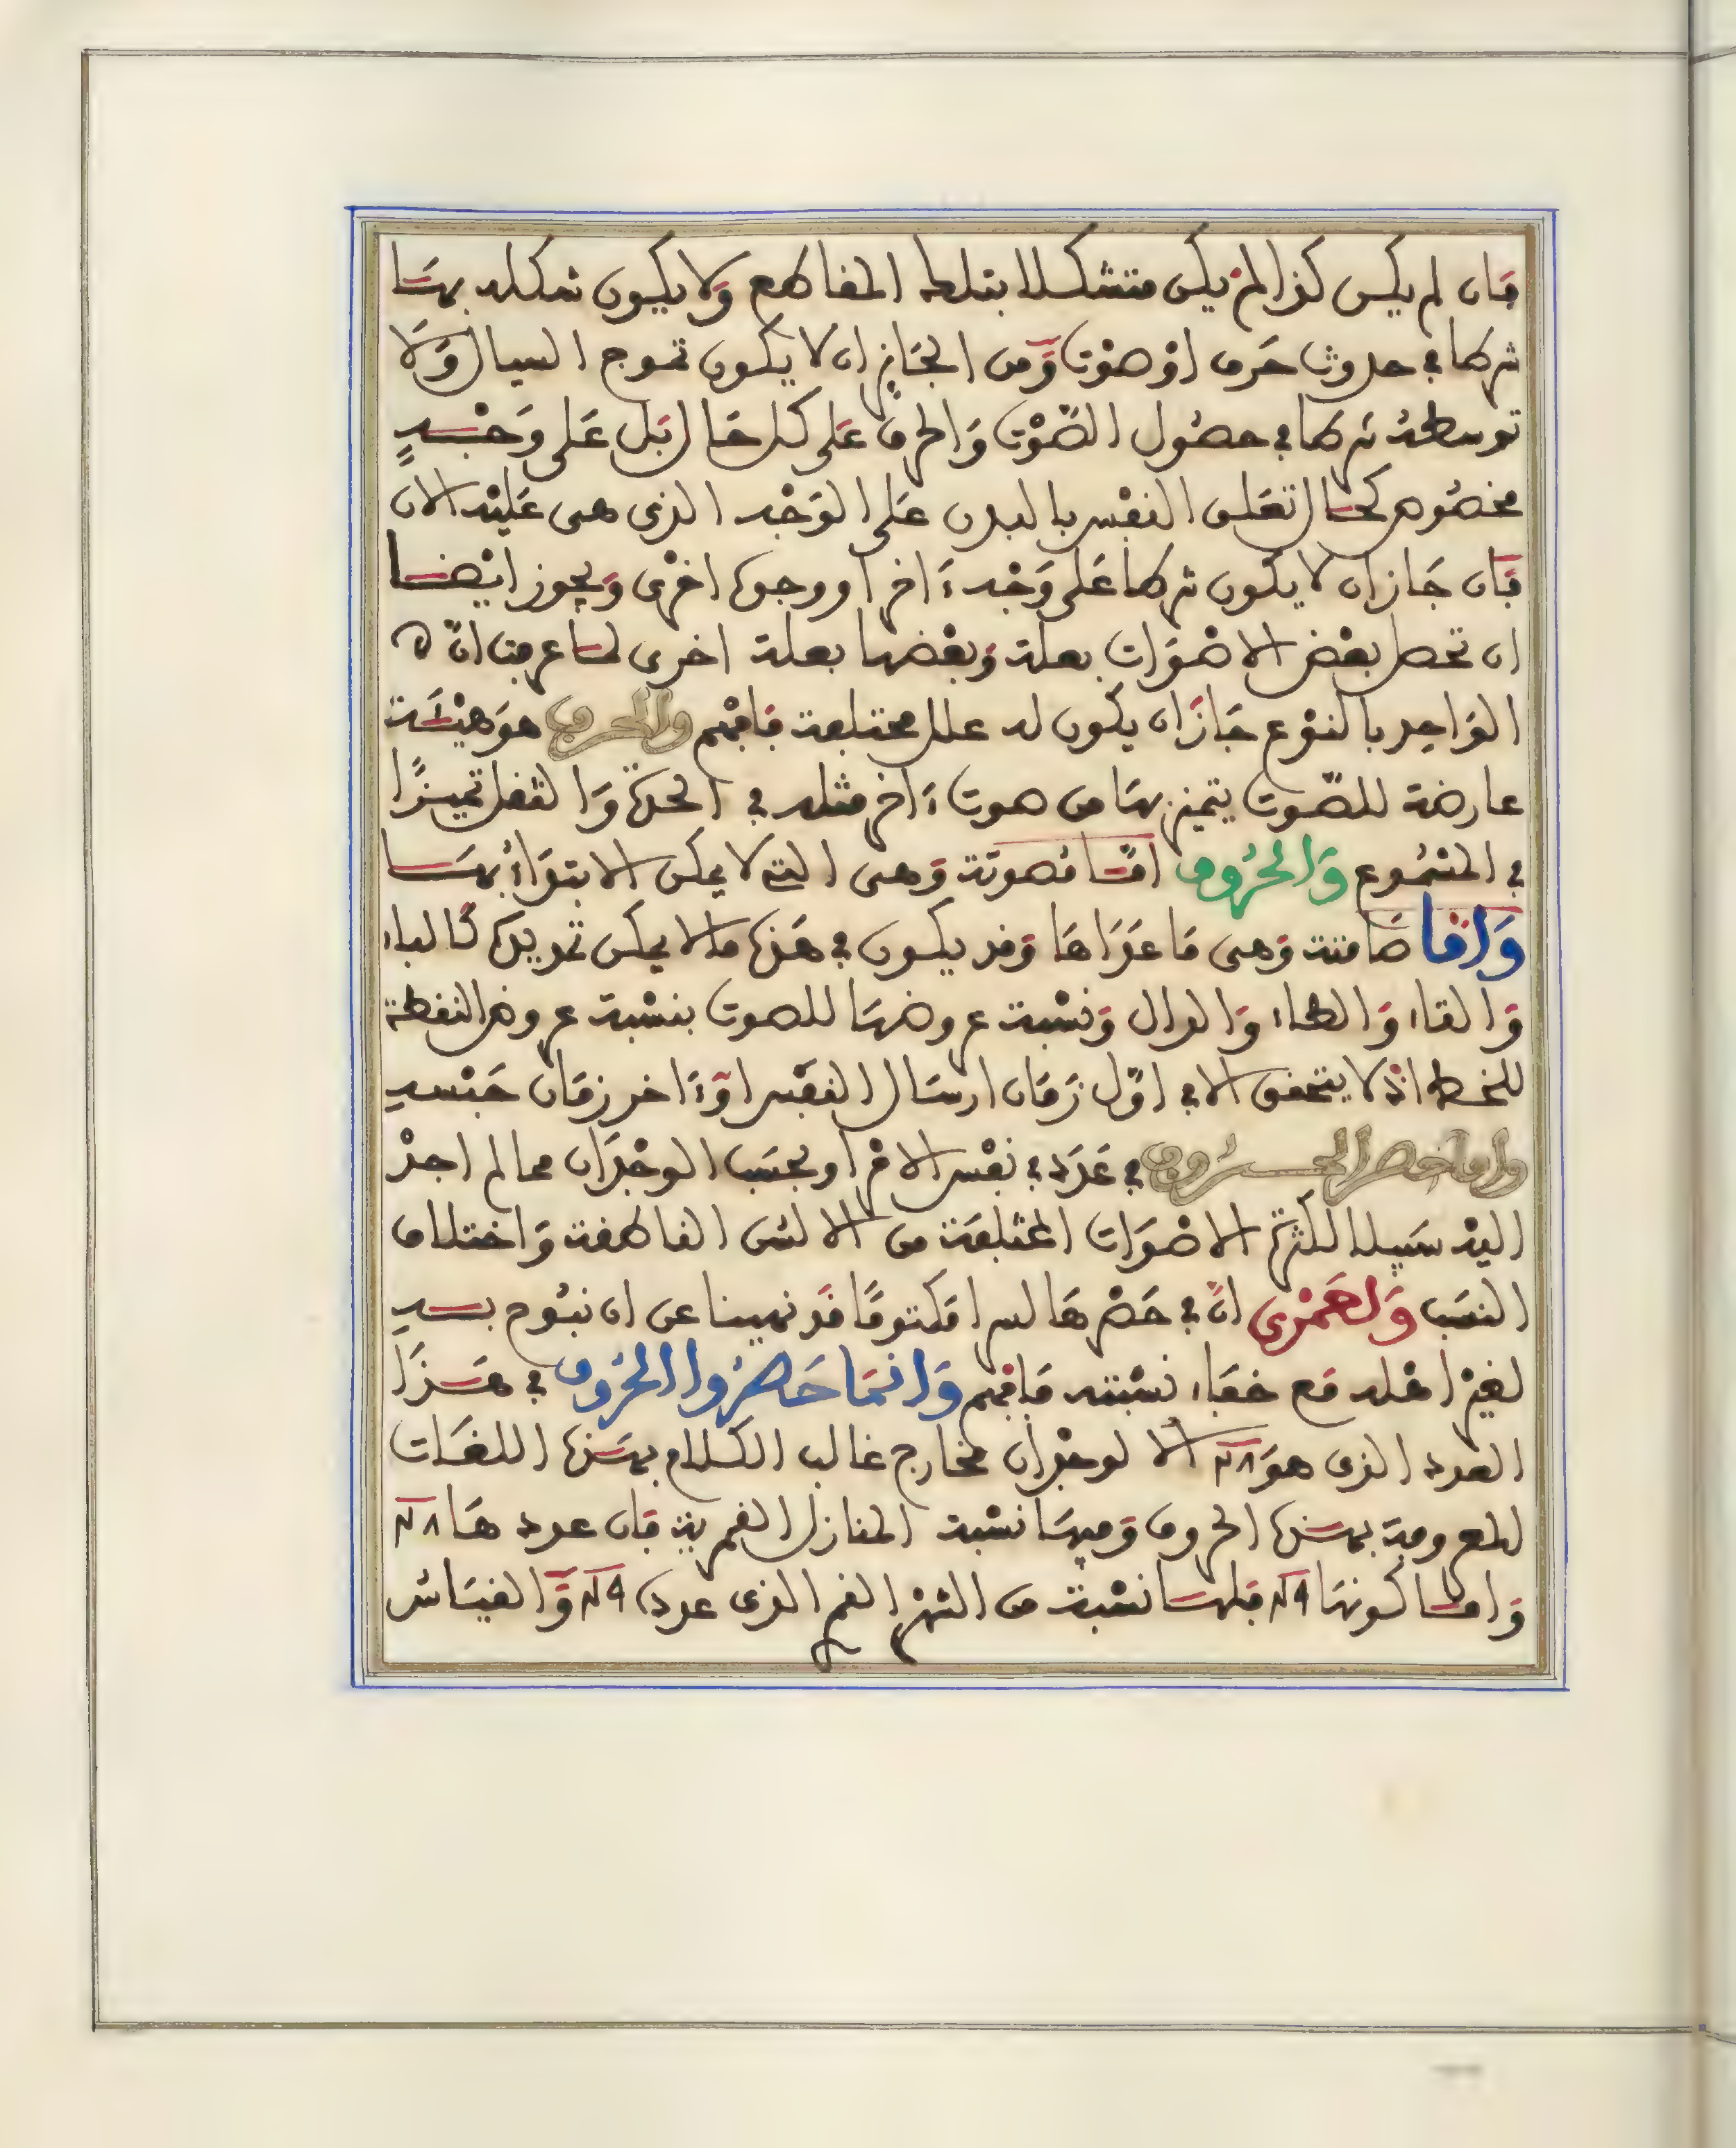 فان لم يكن كذا لم يكن متشكلا بتلك المقاطع ولا يكون تشكله بها
شرطا في حدوث حرف او صوت ومن الجايز ان لا يكون تموج السيال ولا
توسطه شرطا في حصول الصوت والحرف على كل حال بل على وجه
مخصوص كحال تعلق النفس بالبدن على الوجه الذي هي عليه الان
فان جاز ان لا يكون شرطا على وجه ءاخر او وجوه اخرى ويجوز ايضا
ان تحصل بعض الاصوات بعلة وبعضها بعلة اخرى لما عرفت ان
الواحد بالنوع جاز ان يكون له علل مختلفة فافهم والحرف هو هيئة
عارضة للصوت يتميز بها من صوت ءاخر مثله في الحدة والثقل تميزا
في المسموع والحروف اما مصوتة وهي التي لا يمكن الابتداء بها
واما صامتة وهي ما عداها وقد يكون في هذه ما لا يمكن تمديده كالباء
والتاء والطاء والدال ونسبة عروضها للصوت بنسبة عروض النقطة
للخط اذ لا يتحقق الا في اول زمان ارسال النفس او ءاخر زمان حبسه
واما حصر الحروف في عدد في نفس الامر او بحسب الوجدان مما لم اجد
اليه سبيلا لكثرة الاصوات المختلفة من الالسن الناطقة واختلاف
النسب ولعمري ان في حصرها لسرا مكتوما قد نهينا عن ان نبوح بسره
لغير اهله مع خفاء نسبته فافهم وانما حصروا الحروف في هذا
العدد الذي هو ٢٨ الا لوجدان مخارج غالب الكلام بهذه اللغات
المعروفة بهذه الحروف وفيها نسبة المنازل القمرية فان عددها ٢٨
واما كونها ٢٩ فلها نسبة من الشهر القمري الذي عدده ٢٩ والقياس